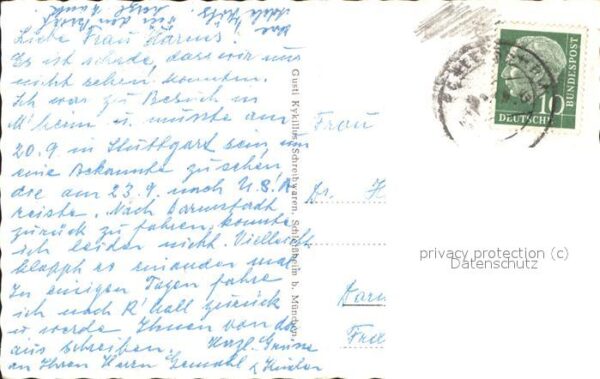 Liebe Frau Harms!
Es ist schade, dass wir uns
nicht sehen konnten.
Ich war zu Besuch in
M'heim u. musste am
20.9 in Stuttgart sein, um
eine Bekannte zu sehen
die am 23.9. nach U.S.A
reiste. Nach Darmstadt
zurück zu fahren, konnte
ich leider nicht. Vielleicht
klappt es einander mal
In einigen Tagen fahre
ich nach R'hall zurück
u werde Ihnen von da
aus schreiben. Herzl. Grüsse
an Ihren Herrn Gemahl & Kinder
Gusti Kykillus, Schreibwaren, Schleißheim b. München
Frau
Dr. H
Darm
DEUTSCHE
BUNDESPOST
10
privacy protection (c)
Datenschutz